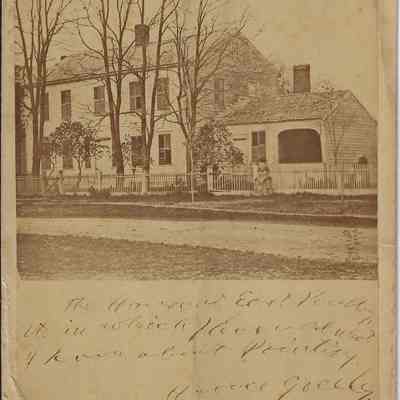 The House in East Poultney
Vt. in which I learned what
I know about Printing.
Horace Greeley.